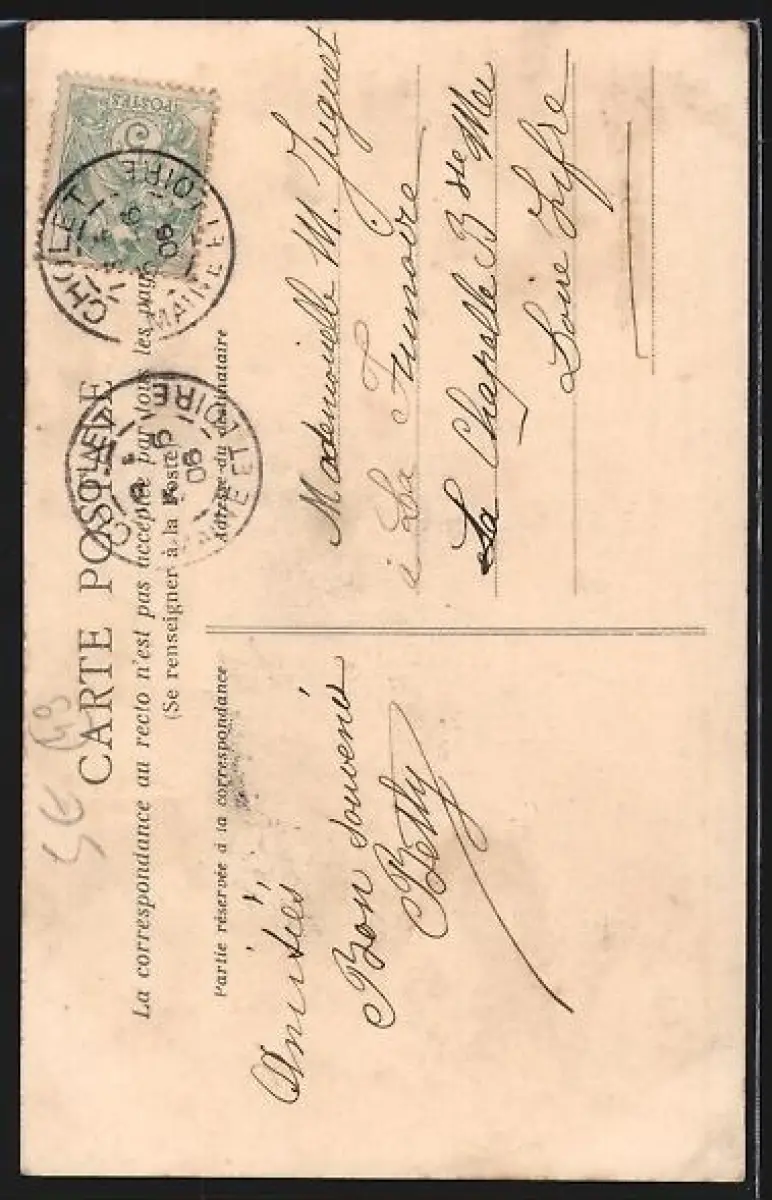 POSTES
5
CHOLET
6
06
MAINE ET LOIRE
CHOLET
6
06
MAINE ET LOIRE
CARTE POSTALE
La correspondance au recto n'est pas acceptée par tous les pays
(Se renseigner à la Poste)
Partie réservée à la correspondance
Amitiés
Bon Souvenir
Betty
Adresse du destinataire
Mademoiselle M. Juguet
à La
La Chapelle Bsse Mer
Loire Infre